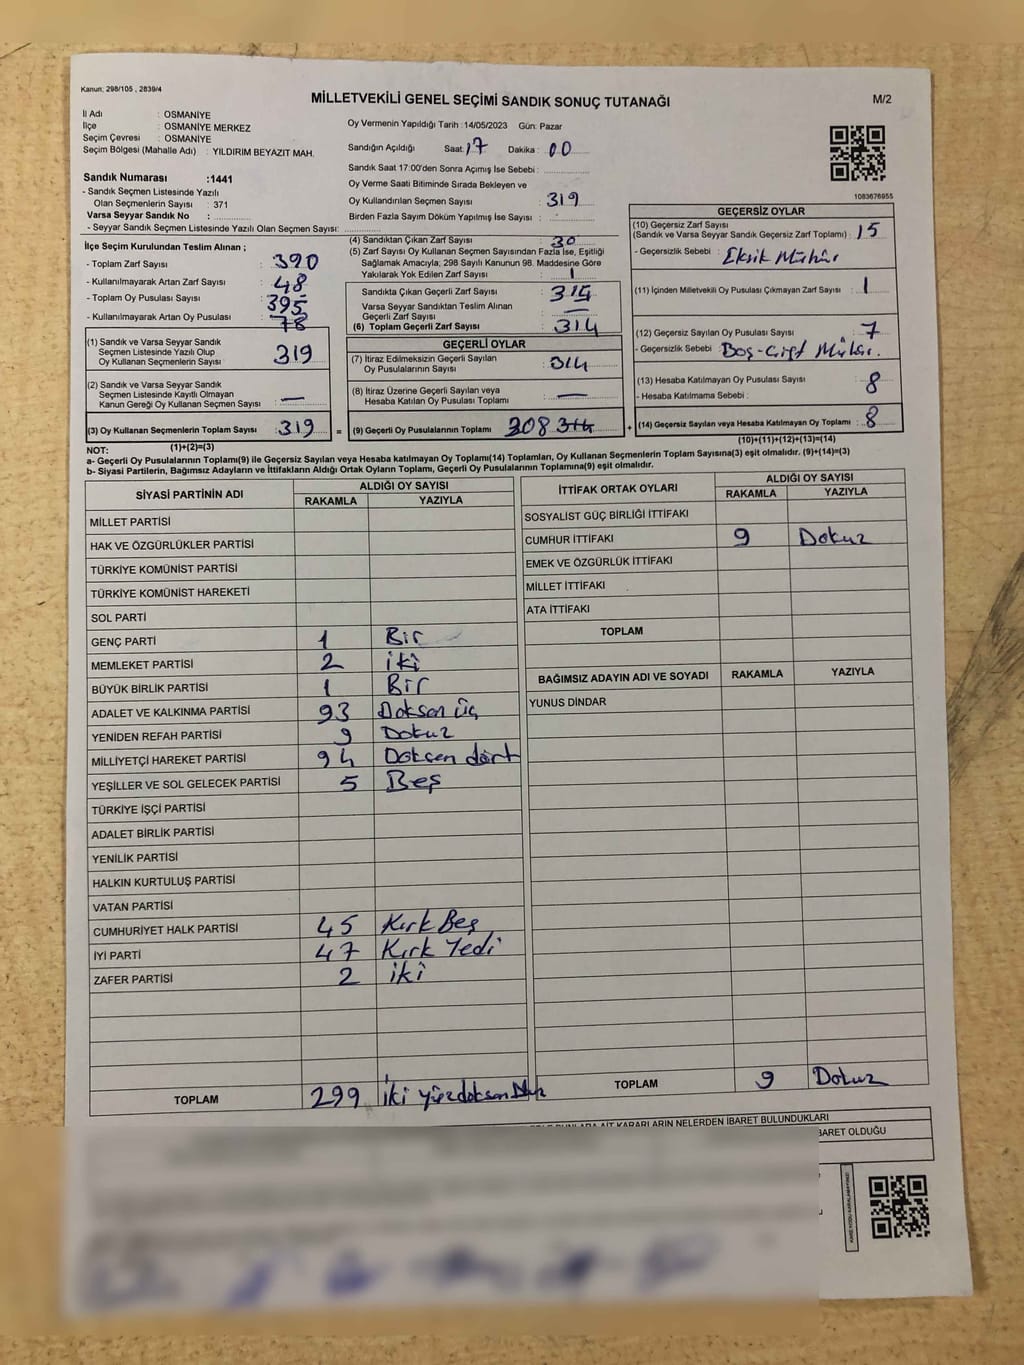 Kanun: 298/105 , 2839/4
MİLLETVEKİLİ GENEL SEÇİMİ SANDIK SONUÇ TUTANAĞI
M/2
İl Adı : OSMANİYE
İlçe : OSMANİYE MERKEZ
Seçim Çevresi : OSMANİYE
Seçim Bölgesi (Mahalle Adı) : YILDIRIM BEYAZIT MAH.
Sandık Numarası :1441
- Sandık Seçmen Listesinde Yazılı
Olan Seçmenlerin Sayısı : 371
Varsa Seyyar Sandık No :
- Seyyar Sandık Seçmen Listesinde Yazılı Olan Seçmen Sayısı:
Oy Vermenin Yapıldığı Tarih :14/05/2023 Gün: Pazar
Sandığın Açıldığı Saat: 17 Dakika : 00
Sandık Saat 17:00'den Sonra Açımış İse Sebebi :
Oy Verme Saati Bitiminde Sırada Bekleyen ve
Oy Kullandırılan Seçmen Sayısı : 319
Birden Fazla Sayım Döküm Yapılmış İse Sayısı :
1083676955
İlçe Seçim Kurulundan Teslim Alınan ;
- Toplam Zarf Sayısı : 390
- Kullanılmayarak Artan Zarf Sayısı : 48
- Toplam Oy Pusulası Sayısı : 395
- Kullanılmayarak Artan Oy Pusulası : 78
(1) Sandık ve Varsa Seyyar Sandık
Seçmen Listesinde Yazılı Olup
Oy Kullanan Seçmenlerin Sayısı : 319
(2) Sandık ve Varsa Seyyar Sandık
Seçmen Listesinde Kayıtlı Olmayan
Kanun Gereği Oy Kullanan Seçmen Sayısı : —
(3) Oy Kullanan Seçmenlerin Toplam Sayısı : 319
(1)+(2)=(3)
(4) Sandıktan Çıkan Zarf Sayısı : 30
(5) Zarf Sayısı Oy Kullanan Seçmen Sayısından Fazla İse, Eşitliği
Sağlamak Amacıyla, 298 Sayılı Kanunun 98. Maddesine Göre
Yakılarak Yok Edilen Zarf Sayısı : 1
Sandıkta Çıkan Geçerli Zarf Sayısı : 315
Varsa Seyyar Sandıktan Teslim Alınan
Geçerli Zarf Sayısı : —
(6) Toplam Geçerli Zarf Sayısı : 314
GEÇERLİ OYLAR
(7) İtiraz Edilmeksizin Geçerli Sayılan
Oy Pusulalarının Sayısı : 314
(8) İtiraz Üzerine Geçerli Sayılan veya
Hesaba Katılan Oy Pusulası Toplamı : —
= (9) Geçerli Oy Pusulalarının Toplamı : 308 314
GEÇERSİZ OYLAR
(10) Geçersiz Zarf Sayısı
(Sandık ve Varsa Seyyar Sandık Geçersiz Zarf Toplamı) : 15
- Geçersizlik Sebebi : Eksik Mühür
(11) İçinden Milletvekili Oy Pusulası Çıkmayan Zarf Sayısı : 1
(12) Geçersiz Sayılan Oy Pusulası Sayısı : 7
- Geçersizlik Sebebi : Boş-Çift Mühür.
(13) Hesaba Katılmayan Oy Pusulası Sayısı : 8
- Hesaba Katılmama Sebebi :
+ (14) Geçersiz Sayılan veya Hesaba Katılmayan Oy Toplamı : 8
(10)+(11)+(12)+(13)=(14)
NOT:
a- Geçerli Oy Pusulalarının Toplamı(9) ile Geçersiz Sayılan veya Hesaba katılmayan Oy Toplamı(14) Toplamları, Oy Kullanan Seçmenlerin Toplam Sayısına(3) eşit olmalıdır. (9)+(14)=(3)
b- Siyasi Partilerin, Bağımsız Adayların ve İttifakların Aldığı Ortak Oyların Toplamı, Geçerli Oy Pusulalarının Toplamına(9) eşit olmalıdır.
SİYASİ PARTİNİN ADI ALDIĞI OY SAYISI
RAKAMLA YAZIYLA
MİLLET PARTİSİ
HAK VE ÖZGÜRLÜKLER PARTİSİ
TÜRKİYE KOMÜNİST PARTİSİ
TÜRKİYE KOMÜNİST HAREKETİ
SOL PARTİ
GENÇ PARTİ 1 Bir
MEMLEKET PARTİSİ 2 iki
BÜYÜK BİRLİK PARTİSİ 1 Bir
ADALET VE KALKINMA PARTİSİ 93 Doksen üç
YENİDEN REFAH PARTİSİ 9 Dokuz
MİLLİYETÇİ HAREKET PARTİSİ 94 Doksen dört
YEŞİLLER VE SOL GELECEK PARTİSİ 5 Beş
TÜRKİYE İŞÇİ PARTİSİ
ADALET BİRLİK PARTİSİ
YENİLİK PARTİSİ
HALKIN KURTULUŞ PARTİSİ
VATAN PARTİSİ
CUMHURİYET HALK PARTİSİ 45 Kırk Beş
İYİ PARTİ 47 Kırk Yedi
ZAFER PARTİSİ 2 iki
TOPLAM 299 iki yüzdoksen
İTTİFAK ORTAK OYLARI ALDIĞI OY SAYISI
RAKAMLA YAZIYLA
SOSYALİST GÜÇ BİRLİĞİ İTTİFAKI
CUMHUR İTTİFAKI 9 Dokuz
EMEK VE ÖZGÜRLÜK İTTİFAKI
MİLLET İTTİFAKI
ATA İTTİFAKI
TOPLAM
BAĞIMSIZ ADAYIN ADI VE SOYADI RAKAMLA YAZIYLA
YUNUS DİNDAR
TOPLAM 9 Dokuz
KARARLARIN NELERDEN İBARET BULUNDUKLARI
BARET OLDUĞU